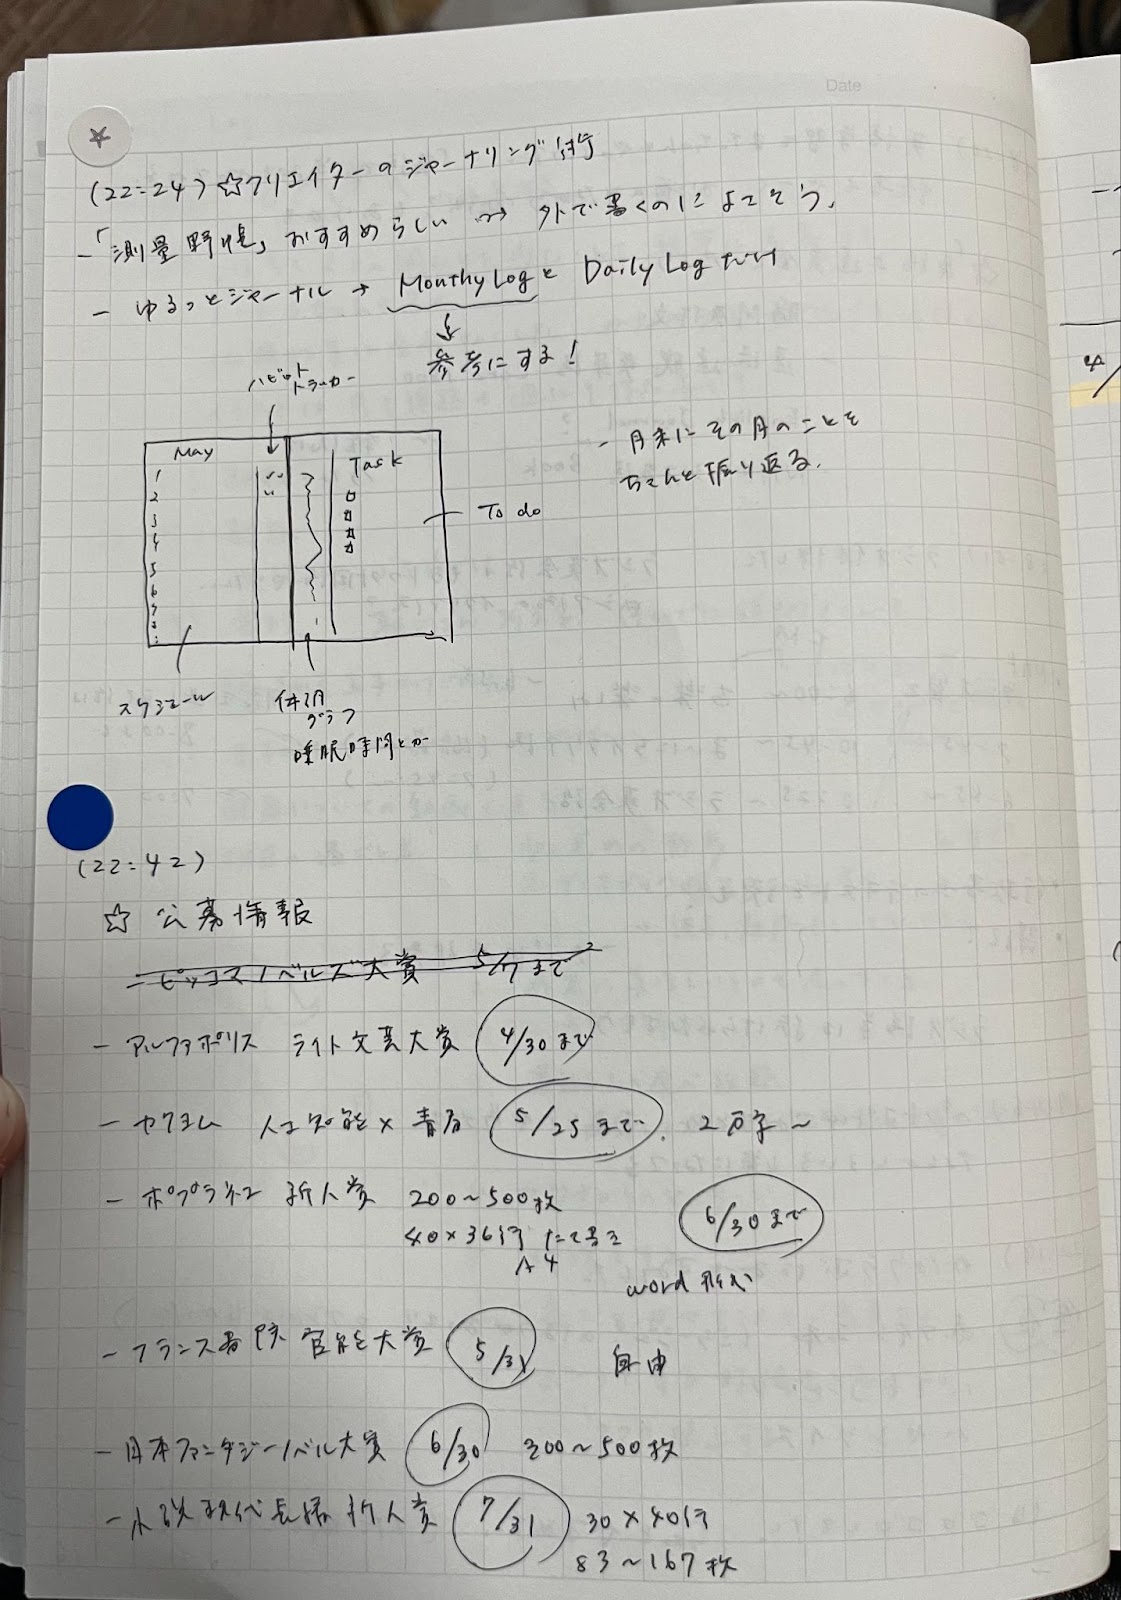 Date
(22:24) ☆クリエイターのジャーナリング術
- 「測量野帳」おすすめらしい → 外で書くのによさそう。
- ゆるっとジャーナル → Monthy Logと Daily Logだけ
参考にする!
ハビット
トラッカー
- 月末にその月のことを
ちゃんと振り返る。
May
Task
1
2
3
4
5
6
7
8
To do
スケジュール
体調
グラフ
睡眠時間とか
(22:42)
☆ 公募情報
- ピッコマノベルズ大賞 5/7まで
- アルファポリス ライト文芸大賞 4/30まで
- カクヨム 人工知能×青春 5/25まで. 2万字~
- ポプラ社 新人賞 200~500枚
6/30まで
40×36行 たて書き
A4
word形式
- フランス書院 官能大賞 5/31 自由
- 日本ファンタジーノベル大賞 6/30 300~500枚
- 小説現代長編新人賞 7/31 30×40行
83~167枚
4/